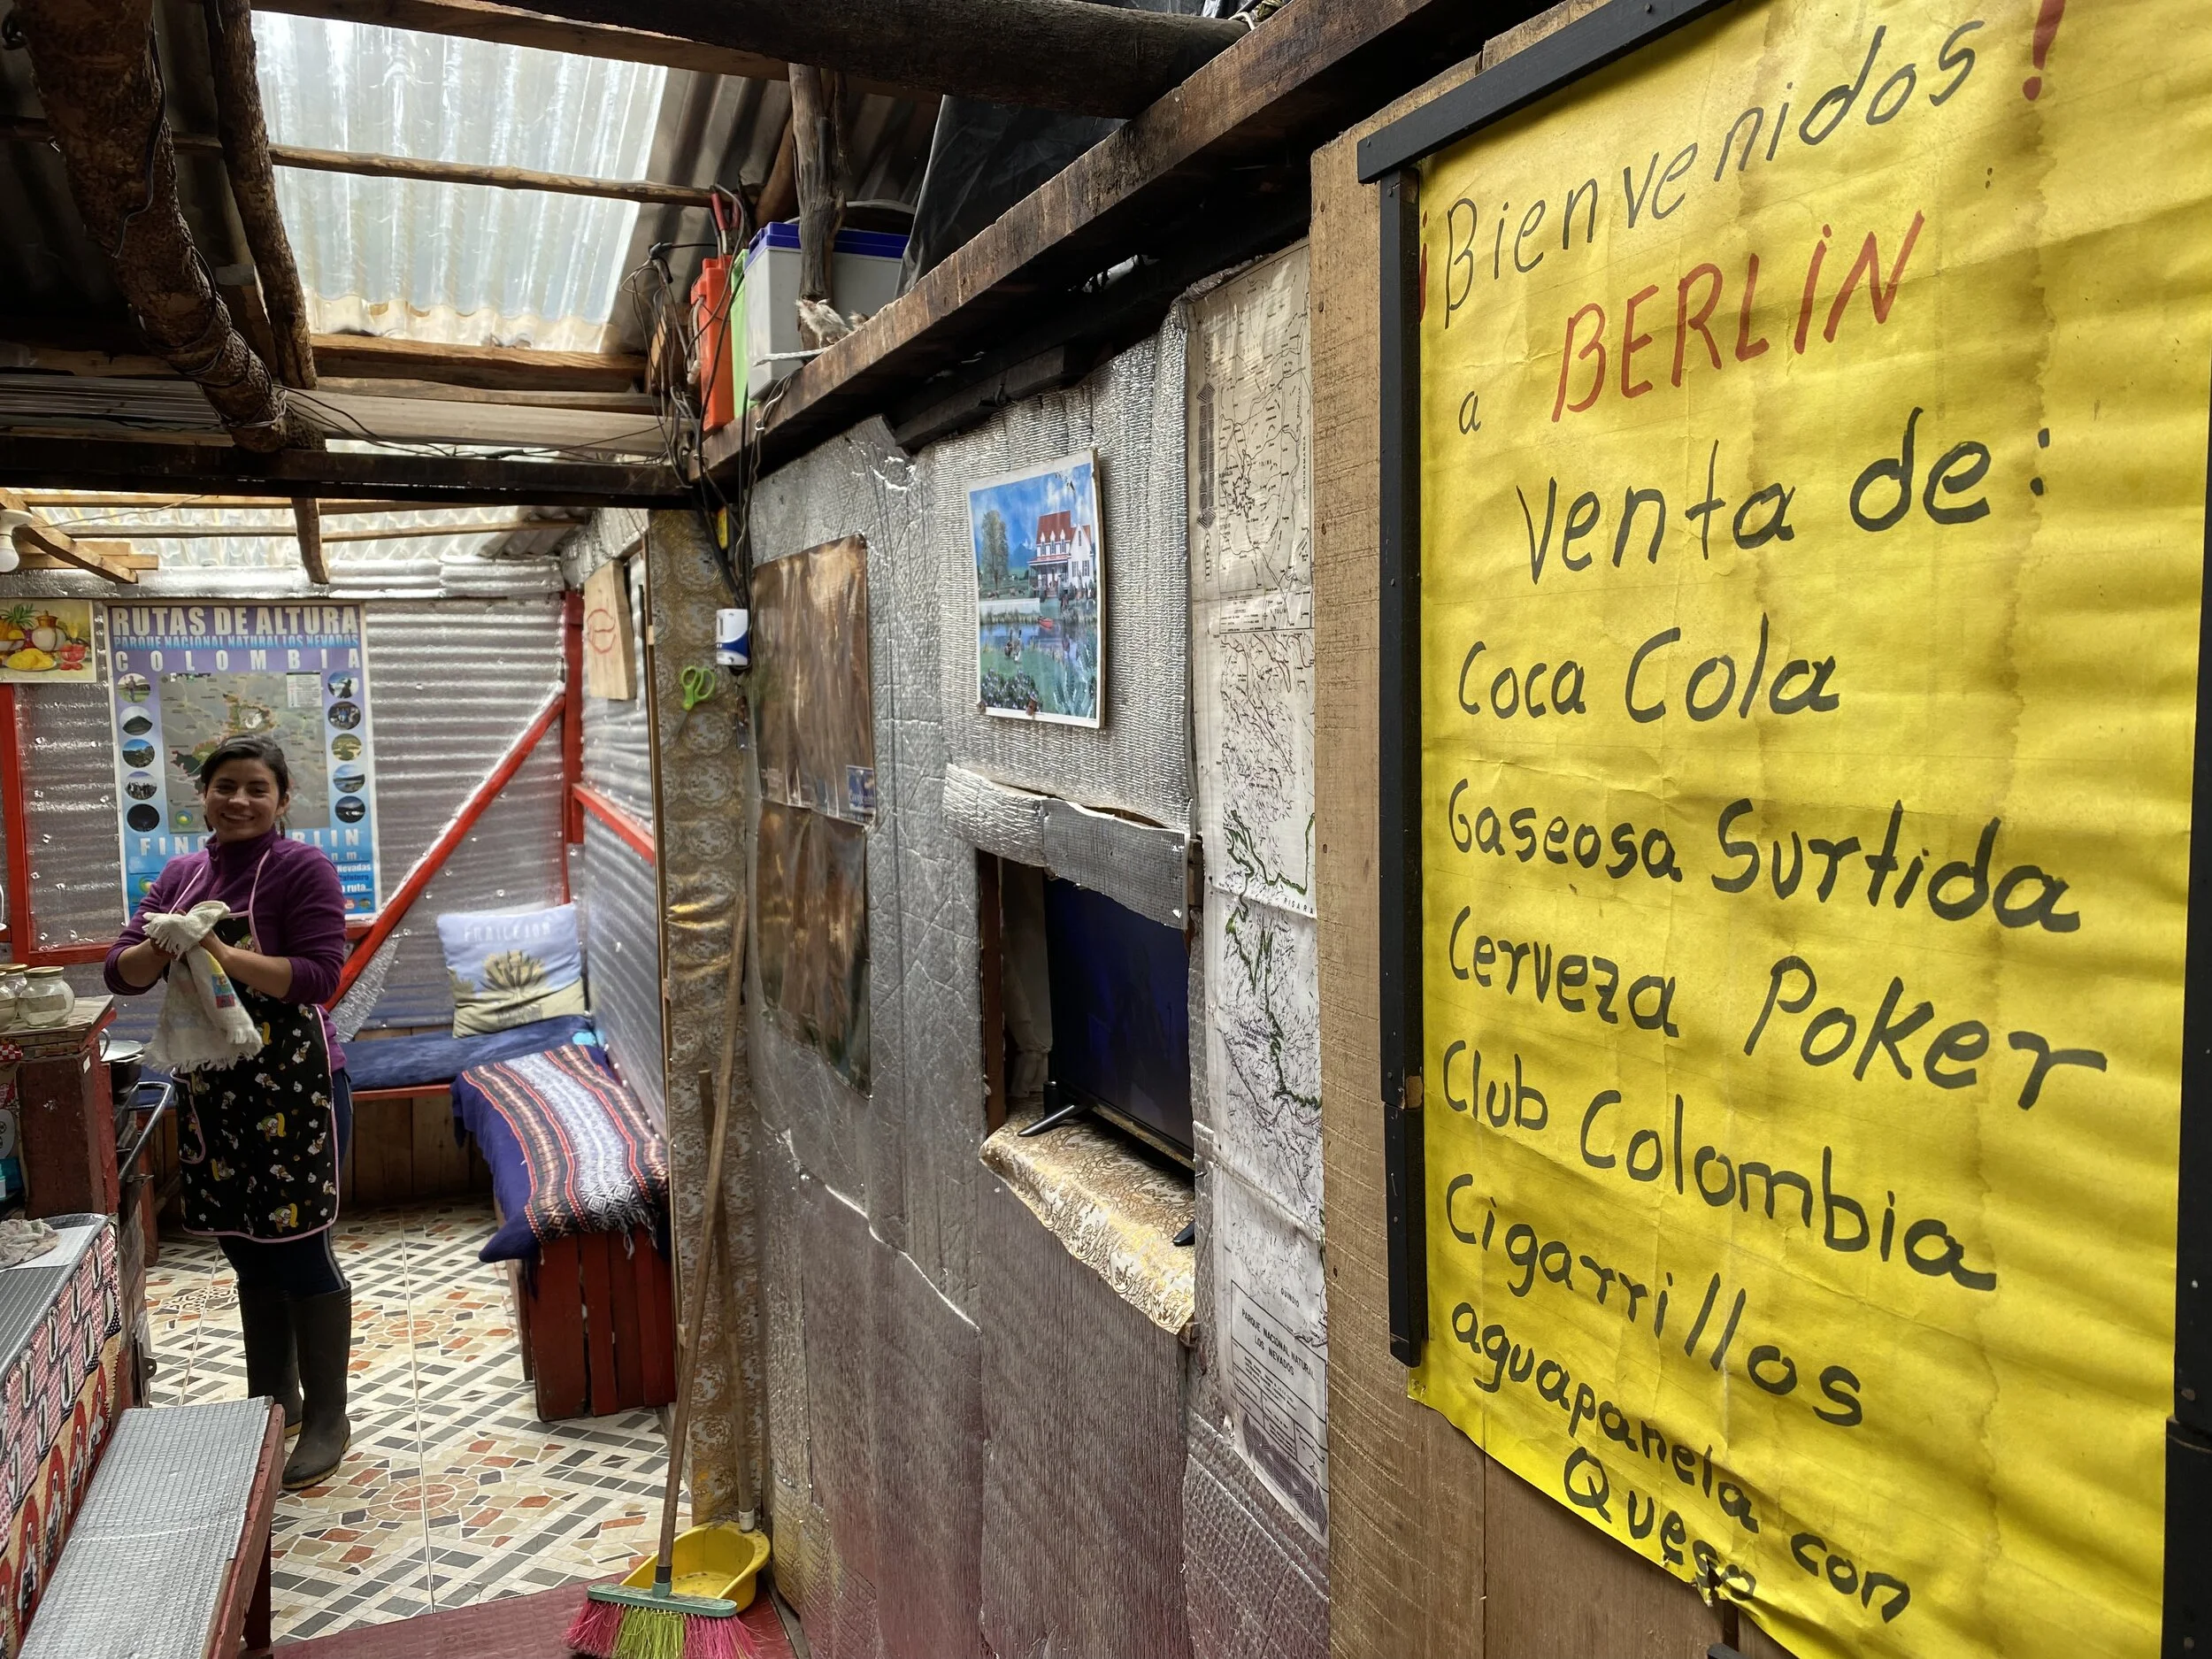 ¡Bienvenidos!
a BERLIN
Venta de:
Coca Cola
Gaseosa Surtida
Cerveza Poker
Club Colombia
Cigarrillos
aguapanela con
Queso
RUTAS DE ALTURA
PARQUE NACIONAL NATURAL LOS NEVADOS
COLOMBIA
FRAILEJON
QUINDIO
PARQUE NACIONAL NATURAL
LOS NEVADOS